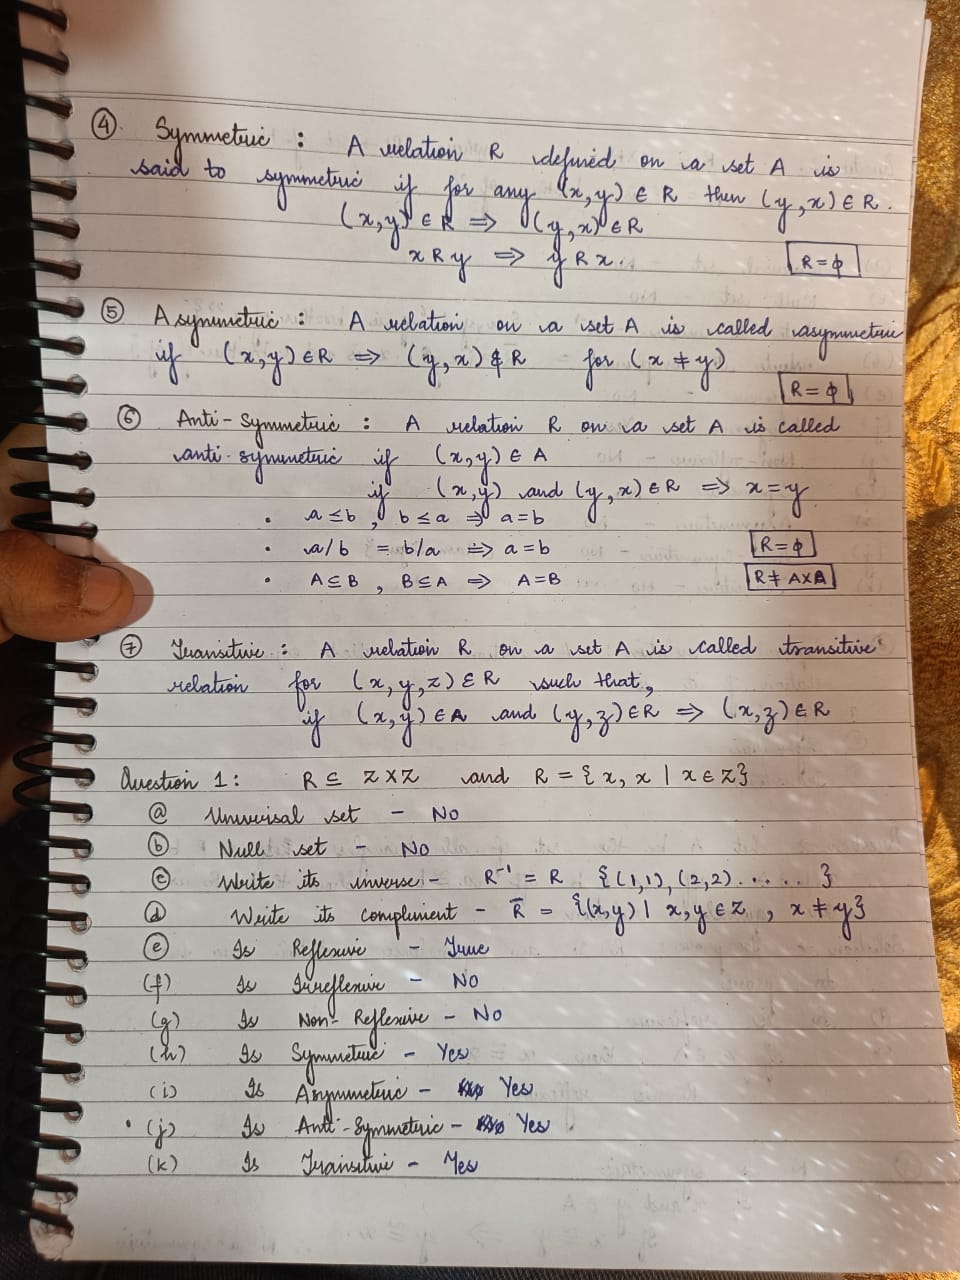 ④. Symmetric : A relation R defined on a set A is
said to symmetric if for any (x,y) ∈ R then (y,x) ∈ R.
(x,y) ∈ R ⇒ (y,x) ∈ R
x R y ⇒ y R x.
R = ϕ
⑤ Asymmetric : A relation on a set A is called asymmetric
if (x,y) ∈ R ⇒ (y,x) ∉ R for (x ≠ y)
R = ϕ
⑥ Anti-Symmetric : A relation R on a set A is called
anti-symmetric if (x,y) ∈ A
if (x,y) and (y,x) ∈ R ⇒ x = y
• a ≤ b , b ≤ a ⇒ a = b
• a/b = b/a ⇒ a = b
R = ϕ
• A ⊆ B , B ⊆ A ⇒ A = B
R ≠ A×A
⑦ Transitive : A relation R on a set A is called transitive
relation for (x,y,z) ∈ R such that,
if (x,y) ∈ A and (y,z) ∈ R ⇒ (x,z) ∈ R
Question 1 : R ⊆ Z×Z and R = { x, x | x ∈ Z }
ⓐ Universal set - No
ⓑ Null set - No
ⓒ Write its inverse - R⁻¹ = R {(1,1), (2,2) . . . . . }
ⓓ Write its compliment - R̅ = {(x,y) | x,y ∈ Z , x ≠ y}
ⓔ Is Reflexive - True
(f) Is Irreflexive - No
(g) Is Non-Reflexive - No
(h) Is Symmetric - Yes
(i) Is Asymmetric - Yes
• (j) Is Anti-Symmetric - Yes
(k) Is Transitive - Yes